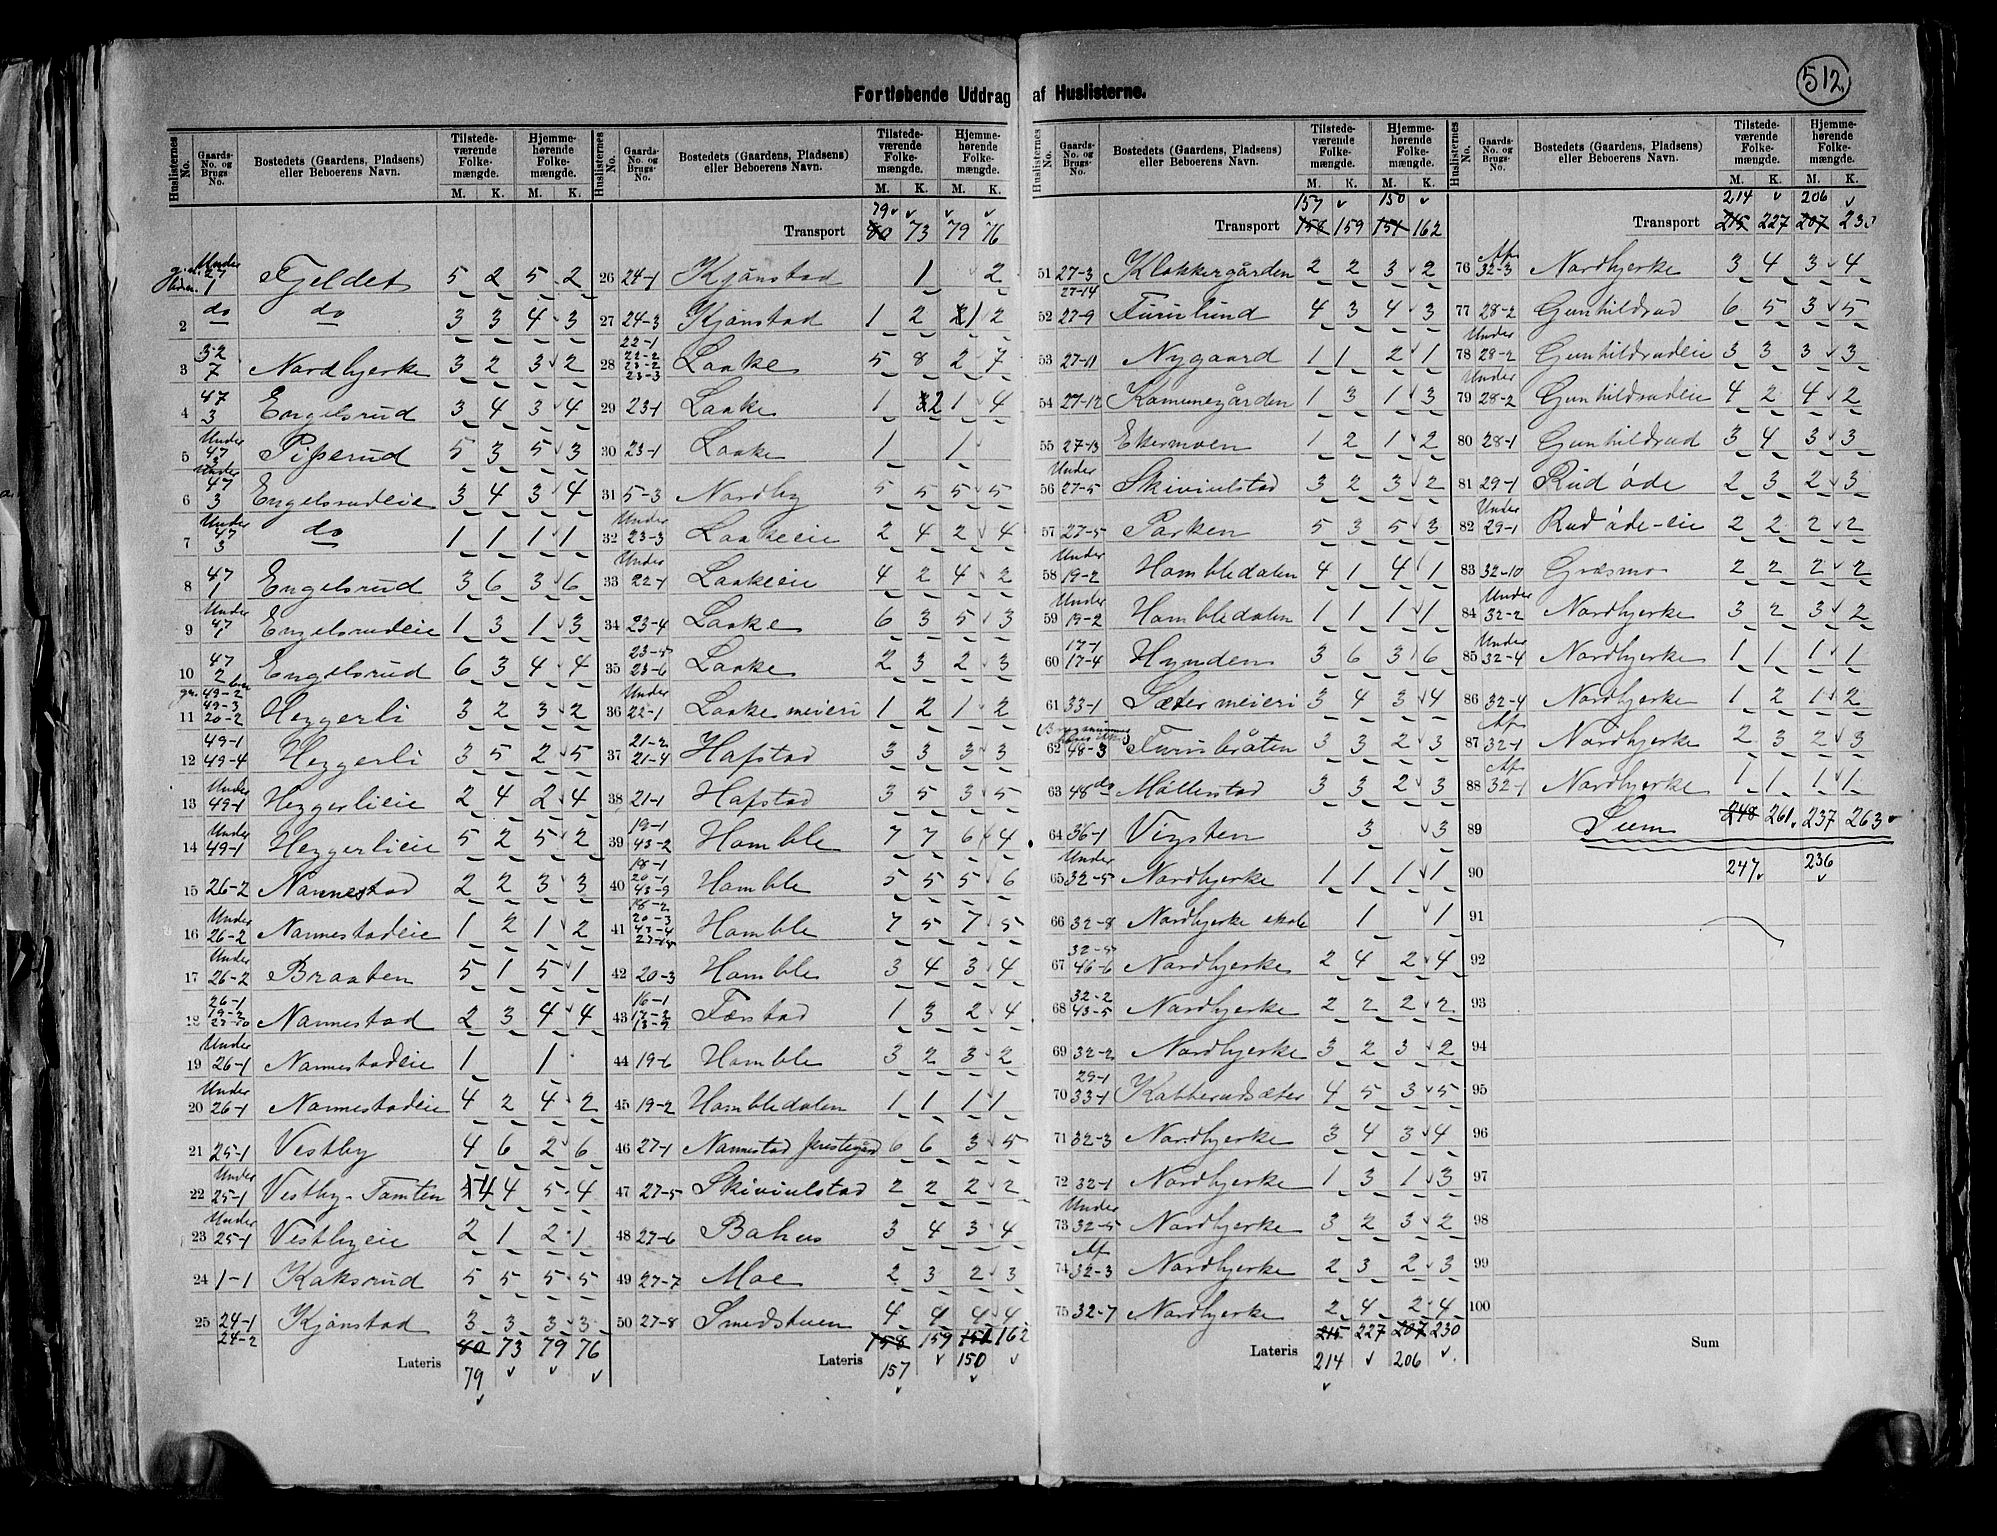 512.
Fortløbende Uddrag af Huslisterne.
Huslisternes No. Gaards-No. og Brugs-No. Bostedets (Gaardens, Pladsens) eller Beboerens Navn. Tilstedeværende Folkemængde. M. K. Hjemmehørende Folkemængde. M. K.
1 Under 27 1 Fjeldet 5 2 5 2
2 do do 3 3 4 3
3 32 7 Nordbyerke 3 2 3 2
4 47 3 Engelsrud 3 4 3 4
5 Under 47 3 Pißerud 5 3 5 3
6 Under 47 3 Engelsrudeie 3 4 3 4
7 Under 47 3 do 1 1 1 1
8 47 1 Engelsrud 3 6 3 6
9 Under 47 1 Engelsrudeie 1 3 1 3
10 47 2 Engelsrud 6 3 4 4
11 49-2 49-3 20-2 Heggerli 3 2 3 2
12 49-1 49-4 Heggerli 3 5 2 5
13 Under 49-1 Heggerlieie 2 4 2 4
14 Under 49-1 Heggerlieie 5 2 5 2
15 26-2 Nannestad 2 2 3 3
16 Under 26-2 Nannestadeie 1 2 1 2
17 Under 26-2 Braaten 5 1 5 1
18 26-1 19-3 27-10 Nannestad 2 3 4 4
19 Under 26-1 Nannestadeie 1 1
20 Under 26-1 Nannestadeie 4 2 4 2
21 25-1 Vestby 4 6 2 6
22 Under 25-1 Vestby-Tomten 4 4 5 4
23 Under 25-1 Vestbyeie 2 1 2 1
24 1-1 Koksrud 5 5 5 5
25 24-1 24-2 Kjønstad 3 3 3 3
Lateris 80 73 79 76
79
Huslisternes No. Gaards-No. og Brugs-No. Bostedets (Gaardens, Pladsens) eller Beboerens Navn. Tilstedeværende Folkemængde. M. K. Hjemmehørende Folkemængde. M. K.
79
Transport 80 73 79 76
26 24-1 Kjønstad 1 2
27 24-3 Kjønstad 1 2 1 2
28 22-1 22-2 23-2 23-3 Laake 5 8 2 7
29 23-1 Laake 1 2 1 4
30 23-1 Laake 1 1
31 5-3 Nordby 5 5 5 5
32 Under 23-3 Laakeeie 2 4 2 4
33 Under 22-1 Laakeeie 4 2 4 2
34 23-4 Laake 6 3 5 3
35 23-5 23-6 Laake 2 3 2 3
36 Under 22-1 Laake meieri 1 2 1 2
37 21-2 21-4 Hafstad 3 3 3 3
38 21-1 Hafstad 3 5 3 5
39 19-1 43-2 Homble 7 7 6 4
40 18-1 20-1 43-9 Homble 5 5 5 6
41 18-2 20-3 43-4 Homble 7 5 7 5
42 20-3 Homble 3 4 3 4
43 16-1 17-2 13-9 Færstad 1 3 2 4
44 19-6 Homble 3 2 3 2
45 19-2 Hombledalen 1 1 1 1
46 27-1 Nannestad prestegård 6 6 3 5
47 27-5 Skiviulstad 2 2 2 2
48 27-6 Bahus 3 4 3 4
49 27-7 Moe 2 3 2 3
50 27-8 Smedstuen 4 4 4 4
Lateris 158 159 151 162
157 150
Huslisternes No. Gaards-No. og Brugs-No. Bostedets (Gaardens, Pladsens) eller Beboerens Navn. Tilstedeværende Folkemængde. M. K. Hjemmehørende Folkemængde. M. K.
157 150
Transport 158 159 151 162
51 27-3 27-14 Klokkergården 2 2 3 2
52 27-9 Furulund 4 3 4 3
53 27-11 Nygaard 1 1 2 1
54 27-12 Komunegården 1 3 1 3
55 27-13 Ekermoen 1 2 1 2
56 Under 27-5 Skiviulstad 3 2 3 2
57 27-5 Parken 5 3 5 3
58 Under 19-2 Hombledalen 4 1 4 1
59 Under 19-2 Hombledalen 1 1 1 1
60 17-1 17-4 Hynden 3 6 3 6
61 33-1 Sæter meieri 3 4 3 4
62 48-3 Furubråten 3 3 2 3
63 48 do Möllerstad 3 3 2 3
64 36-1 Vigsten 3 3
65 Under 32-5 Nordbyerke 1 1 1 1
66 32-8 Nordbyerke skole 1 1
67 32-5 46-6 Nordbyerke 2 4 2 4
68 32-2 43-5 Nordbyerke 2 2 2 2
69 32-2 Nordbyerke 3 2 3 2
70 29-1 33-1 Katterudsæter 4 5 3 5
71 32-3 Nordbyerke 3 4 3 4
72 32-1 Nordbyerke 1 3 1 3
73 Under 32-5 Nordbyerke 3 2 3 2
74 Af 32-3 Nordbyerke 2 3 2 3
75 32-7 Nordbyerke 2 4 2 4
Lateris 215 227 207 230
214 206
Huslisternes No. Gaards-No. og Brugs-No. Bostedets (Gaardens, Pladsens) eller Beboerens Navn. Tilstedeværende Folkemængde. M. K. Hjemmehørende Folkemængde. M. K.
214 206
Transport 215 227 207 230
76 Af 32-3 Nordbyerke 3 4 3 4
77 28-2 Gunhildrud 6 5 3 5
78 Under 28-2 Gunhildrudeie 3 3 3 3
79 Under 28-2 Gunhildrudeie 4 2 4 2
80 28-1 Gunhildrud 3 4 3 3
81 29-1 Rud øde 2 3 2 3
82 Under 29-1 Rud øde-eie 2 2 2 2
83 32-10 Græsmo 2 2 2 2
84 Under 32-2 Nordbyerke 3 2 3 2
85 Under 32-4 Nordbyerke 1 1 1 1
86 32-4 Nordbyerke 1 2 1 2
87 Af 32-1 Nordbyerke 2 3 2 3
88 Af 32-1 Nordbyerke 1 1 1 1
89 Sum 248 261 237 263
90 247 236
91
92
93
94
95
96
97
98
99
100
Sum